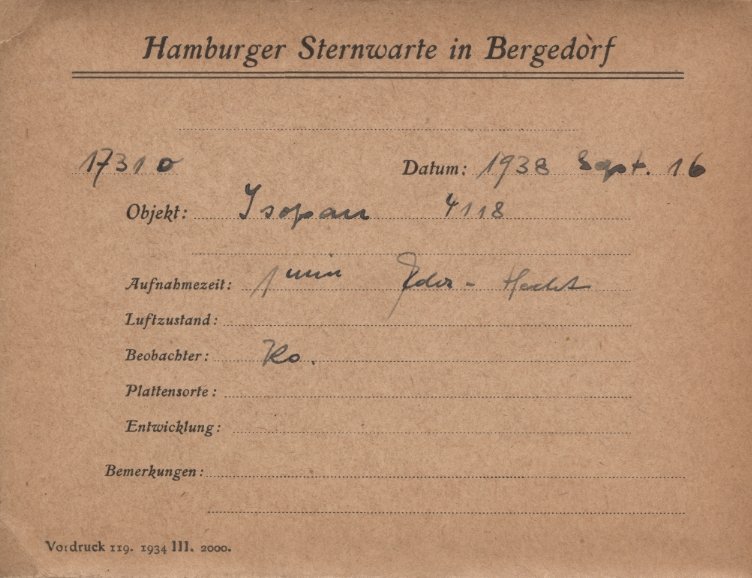 Hamburger Sternwarte in Bergedorf
17310 Datum: 1938 Sept. 16
Objekt: Isopan 4118
Aufnahmezeit: 1 min Eder - Hecht
Luftzustand:
Beobachter: Ko.
Plattensorte:
Entwicklung:
Bemerkungen:
Vordruck 119. 1934 III. 2000.